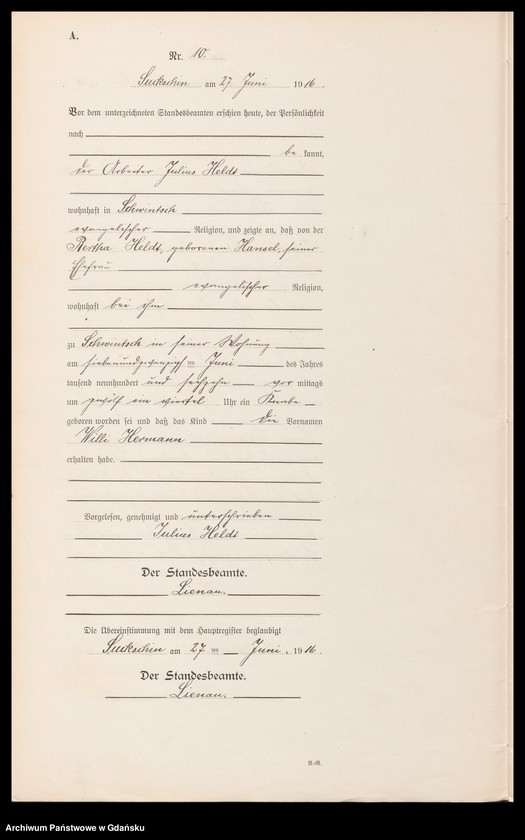 A.
Nr. 10.
Suckschin am 27 Juni 1916.
Vor dem unterzeichneten Standesbeamten erschien heute, der Persönlichkeit
nach
be kannt,
der Arbeiter Julius Heldt
wohnhaft in Schwintsch
evangelischer Religion, und zeigte an, daß von der
Bertha Heldt, geborenen Hansel, seiner
Ehefrau
evangelischer Religion,
wohnhaft bei ihm
zu Schwintsch in seiner Wohnung
am siebenundzwanzigsten Juni des Jahres
tausend neunhundert und sechzehn vor mittags
um zwölf ein viertel Uhr ein Knabe
geboren worden sei und daß das Kind die Vornamen
Willi Hermann
erhalten habe.
Vorgelesen, genehmigt und unterschrieben
Julius Heldt
Der Standesbeamte.
Lienau.
Die Übereinstimmung mit dem Hauptregister beglaubigt
Suckschin am 27 ten Juni. 1916.
Der Standesbeamte.
Lienau.
Archiwum Państwowe w Gdańsku